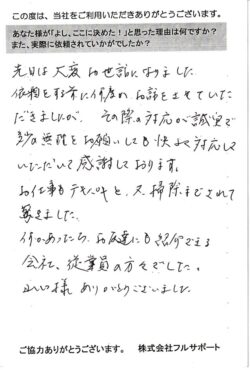 この度は、当社をご利用いただきありがとうございます。
あなた様が「よし、ここに決めた！」と思った理由は何ですか？
また、実際に依頼されていかがでしたか？
先日は大変お世話になりました。
依頼をする前に何度かお話をさせていた
だきましたが、その際の対応が誠実で
多少無理をお願いしても快よく対応して
いただいて感謝しております。
お仕事もテキパキと、又掃除までされて
驚きました。
何かあったら、お友達にも紹介できる
会社、従業員の方々でした。
様ありがとうございました。
ご協力ありがとうございます。 株式会社フルサポート